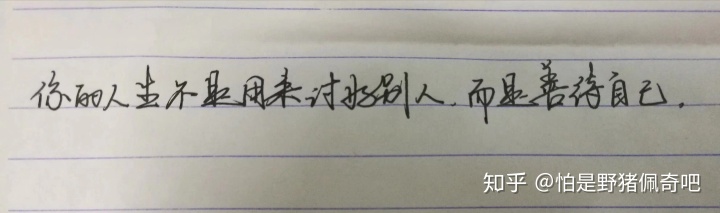 你的人生不是用来讨好别人，而是善待自己.
知乎 @怕是野猪佩奇吧